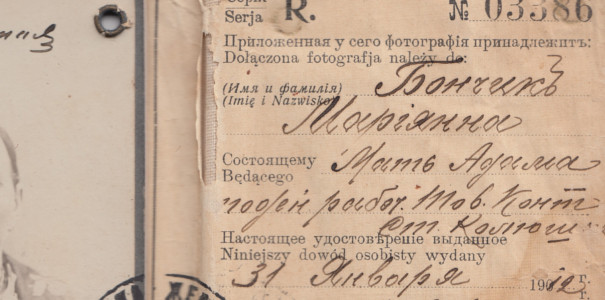 Серія
Serja R. № 03386
Приложенная у сего фотографія принадлежитъ:
Dołączona fotografja należy do:
(Имя и фамилія) Бончикъ
(Imię i Nazwisko)
Маріянна
Состоящему Мать Адама
Będącego
поден рабоч. Тов. Конт
Ст. Колюш
Настоящее удостовѣреніе выданное
Niniejszy dowód osobisty wydany
31 Января 1912 г.